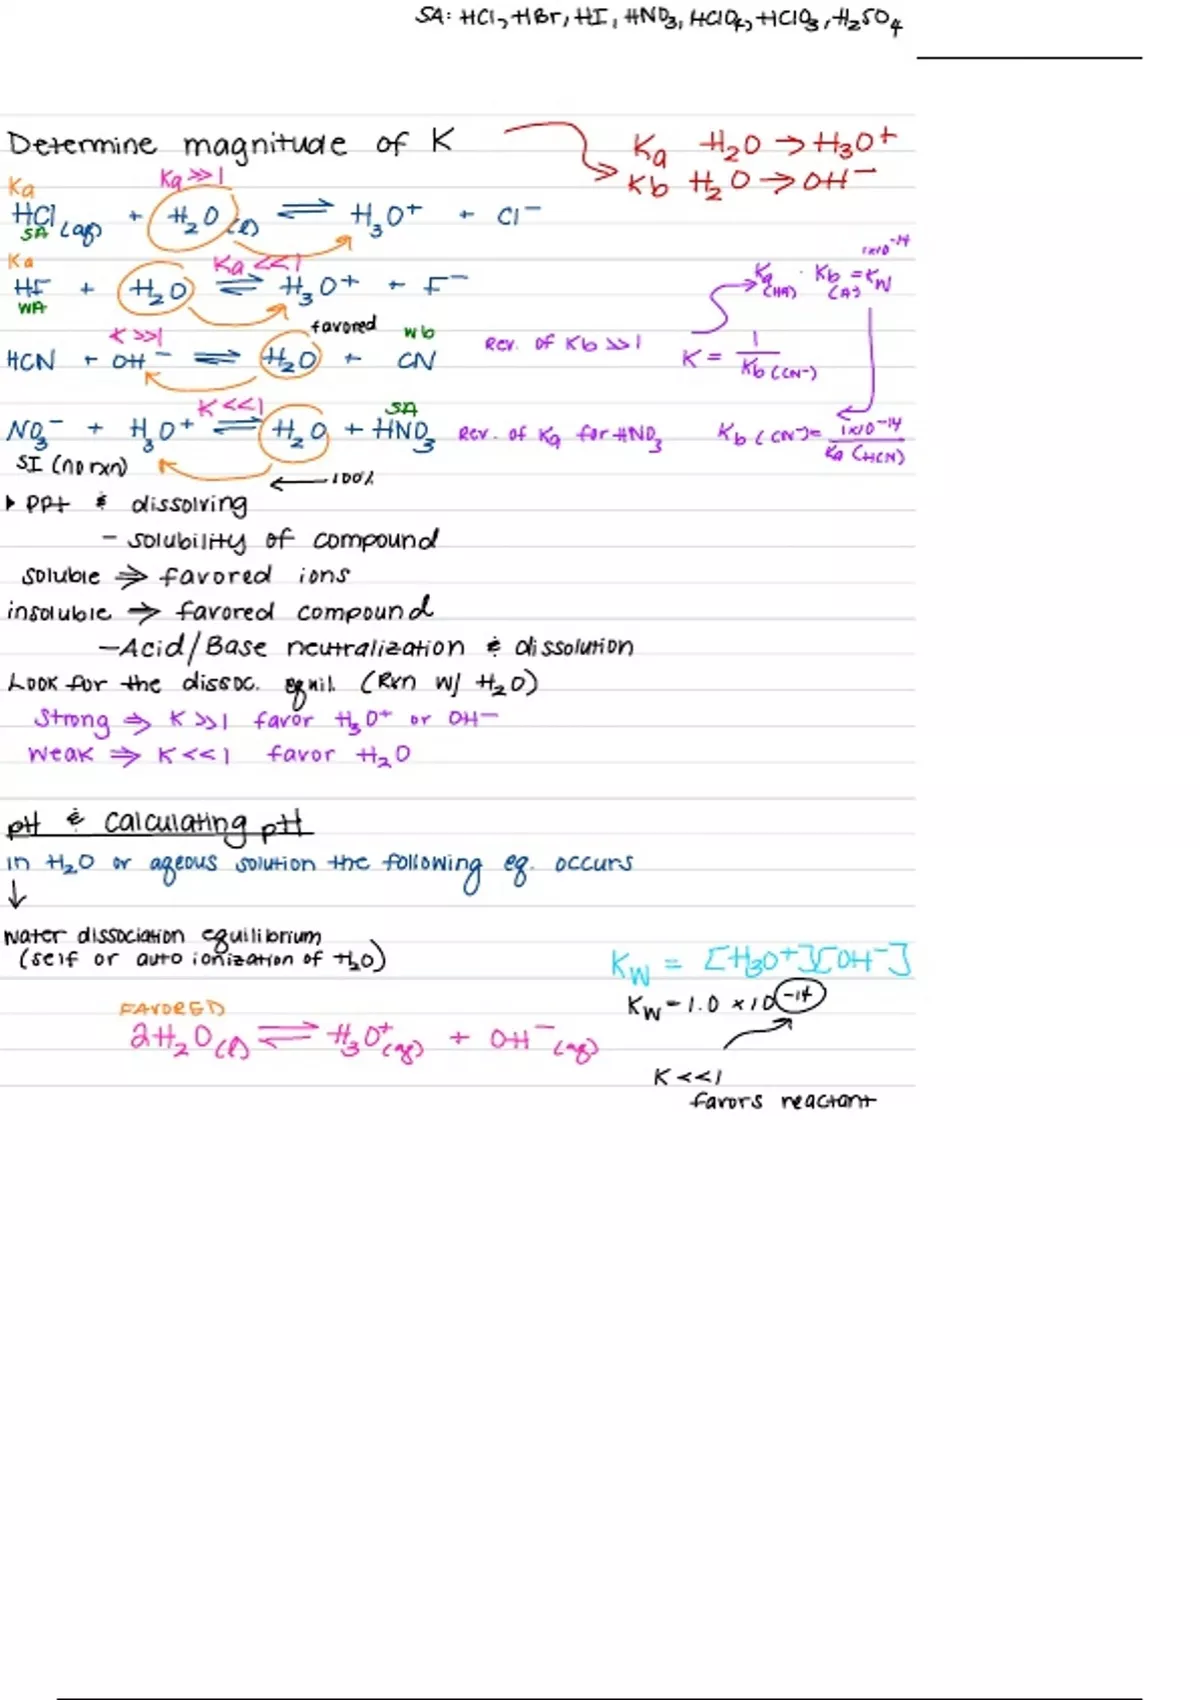 SA: HCl, HBr, HI, HNO3, HClO4, HClO3, H2SO4
Determine magnitude of K
Ka H2O → H3O+
Kb H2O → OH−
Ka
Ka >> 1
HCl (aq) + H2O (l) ⇌ H3O+ + Cl−
SA
Ka
Ka << 1
HF + H2O ⇌ H3O+ + F−
WA
1x10-14
Ka (HA) · Kb (A-) = Kw
favored
K >> 1
wb
HCN + OH− ⇌ H2O + CN
Rev. of Kb >> 1
K = 1 / Kb (CN−)
K << 1
SA
NO3− + H3O+ ⇌ H2O + HNO3
Rev. of Ka for HNO3
Kb (CN−) = 1x10-14 / Ka (HCN)
SI (no rxn)
← 100%
▸ ppt & dissolving
- solubility of compound
soluble ⇒ favored ions
insoluble ⇒ favored compound
- Acid/Base neutralization & dissolution
Look for the dissoc. equil. (Rxn w/ H2O)
Strong ⇒ K >> 1 favor H3O+ or OH−
Weak ⇒ K << 1 favor H2O
pH & Calculating pH
in H2O or aqeous solution the following eq. occurs
↓
water dissociation equilibrium
(self or auto ionization of H2O)
Kw = [H3O+][OH−]
Kw = 1.0 x 10-14
FAVORED
2H2O(l) ⇌ H3O+(aq) + OH−(aq)
K << 1
favors reactant